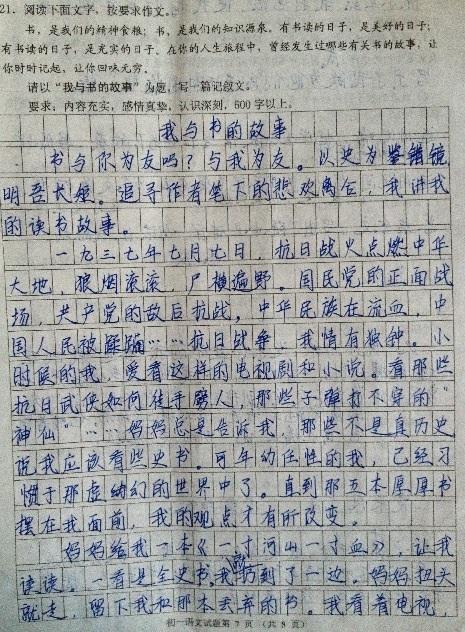 21. 阅读下面文字，按要求作文。
书，是我们的精神食粮；书，是我们的知识源泉。有书读的日子，是美好的日子；
有书读的日子，是充实的日子。在你的人生旅程中，曾经发生过哪些有关书的故事，让
你时时记起，让你回味无穷。
请以“我与书的故事”为题，写一篇记叙文。
要求：内容充实，感情真挚，认识深刻，600字以上。
我与书的故事
书与你为友吗？与我为友。以史为鉴镜
明吾长短。追寻作者笔下的悲欢离合，我讲我
的读书故事。
一九三七年七月七日，抗日战火点燃中华
大地，狼烟滚滚，尸横遍野。国民党的正面战
场，共产党的敌后抗战，中华民族在流血，中
国人民被蹂躏……抗日战争，我情有独钟。小
时候的我，爱看这样的电视剧和小说。看那些
抗日武侠如何徒手劈人，那些子弹打不穿的“
神仙”……妈妈总是告诉我，那些不是真历史
说我应该看些史书。可年幼任性的我，已经习
惯于那虚幻的世界中了。直到那五本厚厚书
摆在我面前，我的观点才有所改变。
妈妈给我一本《一寸河山一寸血》，让我
读读。一看是全史书，我扔到了一边。妈妈扭头
就走，留下我和那本丢弃的书。我看着电视，
初一语文试题第 7 页 （共 8 页）